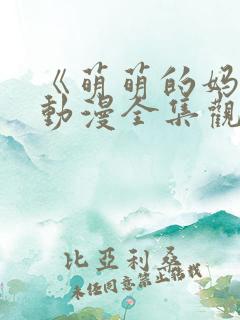 《萌萌的妈
動漫全集觀
比亞利桑
未经同意禁止转载